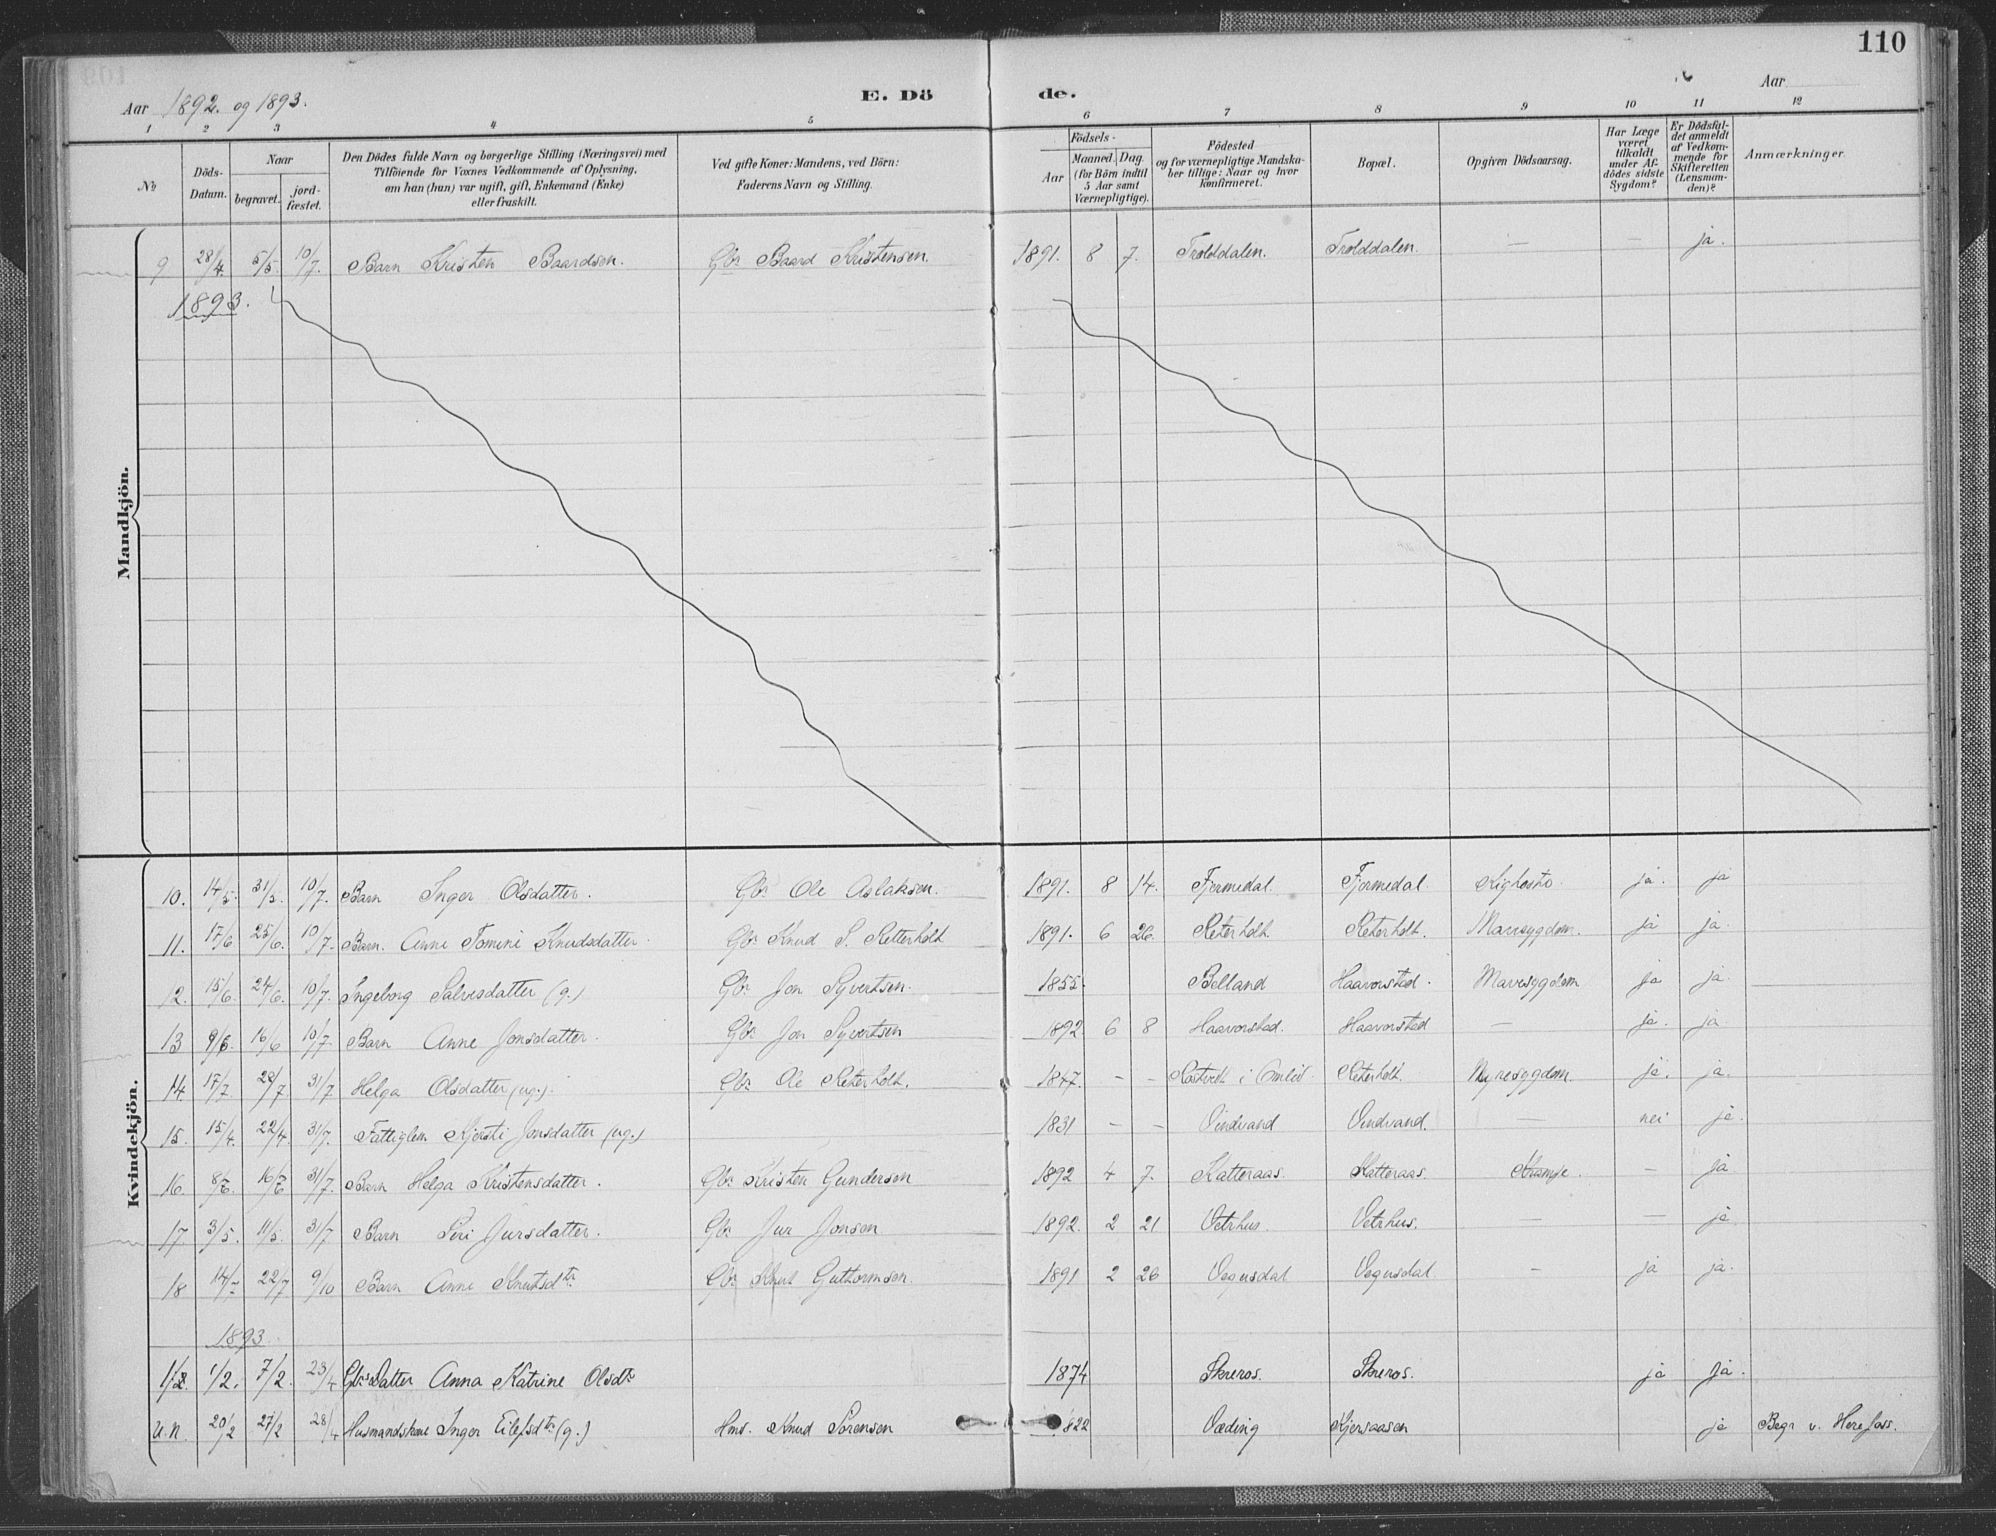 110
Aar 1892. og 1893.
E. Dö de.
Aar
1 2 3 4 5 6 7 8 9 10 11 12
No
Döds-Datum.
Naar
begravet.
jord-fæstet.
Den Dödes fulde Navn og borgerlige Stilling (Næringsvei) med
Tilföiende for Voxnes Vedkommende af Oplysning,
om han (hun) var ugift, gift, Enkemand (Enke)
eller fraskilt.
Ved gifte Koner: Mandens, ved Börn:
Faderens Navn og Stilling.
Födsels-
Aar
Maaned. Dag.
(for Börn indtil
5 Aar samt
Værnepligtige).
Födested
og for værnepligtige Mandska-
ber tillige: Naar og hvor
konfirmeret.
Bopæl.
Opgiven Dödsaarsag.
Har Læge
været
tilkaldt
under Af-
dödes sidste
Sygdom?
Er Dödsfal-
det anmeldt
af Vedkom-
mende for
Skifteretten
(Lensman-
den)?
Anmærkninger.
Mandkjön.
9 28/4. 5/5. 10/7. Barn Kristen Baardsen. Gbr Baard Kristensen. 1891. 8 7. Trolddalen. Trolddalen. — — ja.
1893.
Kvindekjön.
10. 14/5. 31/5. 10/7. Barn Inger Olsdatter. Gbr. Ole Aslaksen. 1891. 8 14. Fjermedal. Fjermedal. Kighoste. ja. ja
11. 17/6 25/6. 10/7. Barn. Anne Tomine Knudsdatter. Gbr Knud S. Retterholt 1891. 6 26. Reterholt. Reterholt. Mavesygdom. ja ja.
12. 15/6. 24/6. 10/7. Ingeborg Salvesdatter (g.) Gbr Jon Syvertsen. 1855. Belland Haavorstad. Mavesygdom ja ja.
13 9/6. 16/6 10/7. Barn Anne Jonsdatter. Gbr Jon Syvertsen 1892 6 8 Haavorstad. Haavorstad — ja. ja
14 17/7 28/7 31/7 Helga Olsdatter (ug.). Gbr. Ole Reterholt. 1847. – – i Omlid. Reterholt. Nyresygdom. ja. ja.
15. 15/4. 22/4 31/7. Fattiglem Kjersti Jonsdatter (ug.) 1831 – – Vindvand Vindvand. — nei ja.
16. 8/6. 16/6 31/7. Barn Helga Kristensdatter. Gbr. Kristen Gundersen 1892 4 7. Katteraas. Katteraas. Krampe. – ja
17 3/5. 11/5. 31/7 Barn Siri Jursdatter. Gbr. Jur Jonsen 1892. 2 21 Vetrhus. Vetrhus. — — ja
18 14/7 22/7 9/10 Barn Anne Knutsdtr Gbr Knut Guttormsen. 1891 2 26 Vegusdal Vegusdal – ja ja.
1893.
1/2. 7/2. 23/4 Gbrs Datter Anna Katrine Olsdtr 1874 Skreros. Skreros. ja ja.
U.N. 20/2 27/2 28/4 Husmandskone Inger Eilefsdtr (g.) Hmd. Knud Sørensen 1822 Væding Kjersaasen ja Begr v. Herefoss.